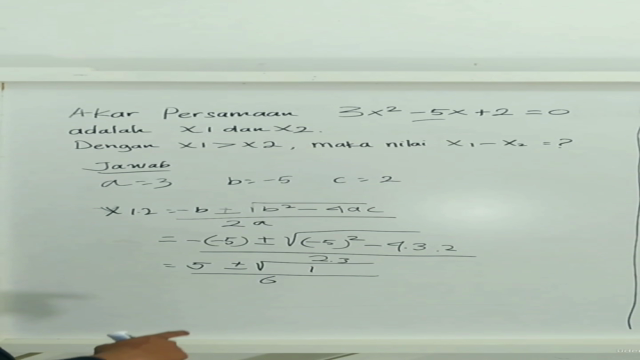 Akar Persamaan 3x² - 5x + 2 = 0
adalah x1 dan x2.
Dengan x1 > x2, maka nilai x₁ - x₂ = ?
Jawab
a = 3 b = -5 c = 2
x1.2 = -b ± √b² - 4ac
2a
= -(-5) ± √(-5)² - 4.3.2
2.3
= 5 ± √1
6